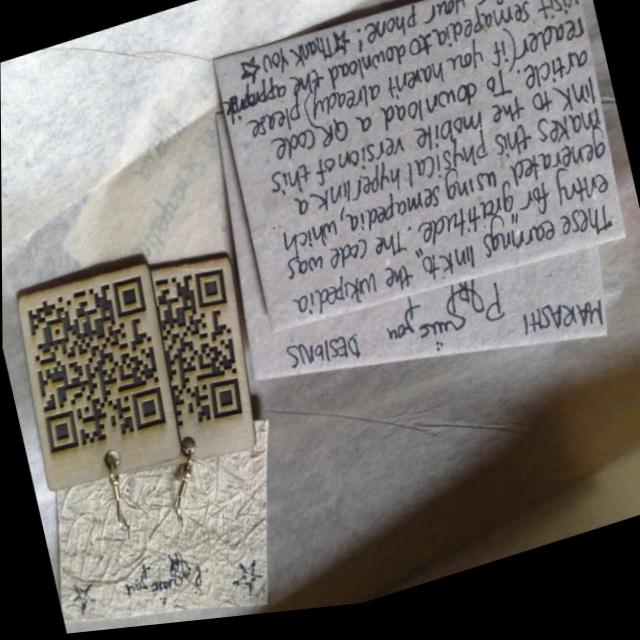 These earrings link to the wikipedia
entry for "gratitude". The code was
generated using semapedia, which
makes this physical hyperlink a
link to the mobile version of this
article. To download a QR Code
reader (if you haven't already) please
visit semapedia to download the app on
your phone! Thank You
MARASHI DESIGNS
you